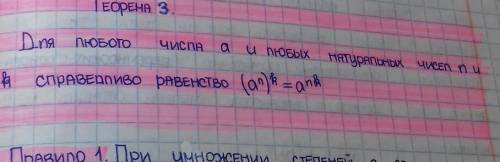 Теорема 3.
Для любого числа a и любых натуральных чисел n и
k справедливо равенство (aⁿ)ᵏ = aⁿᵏ
Правило 1. При умножении степеней с